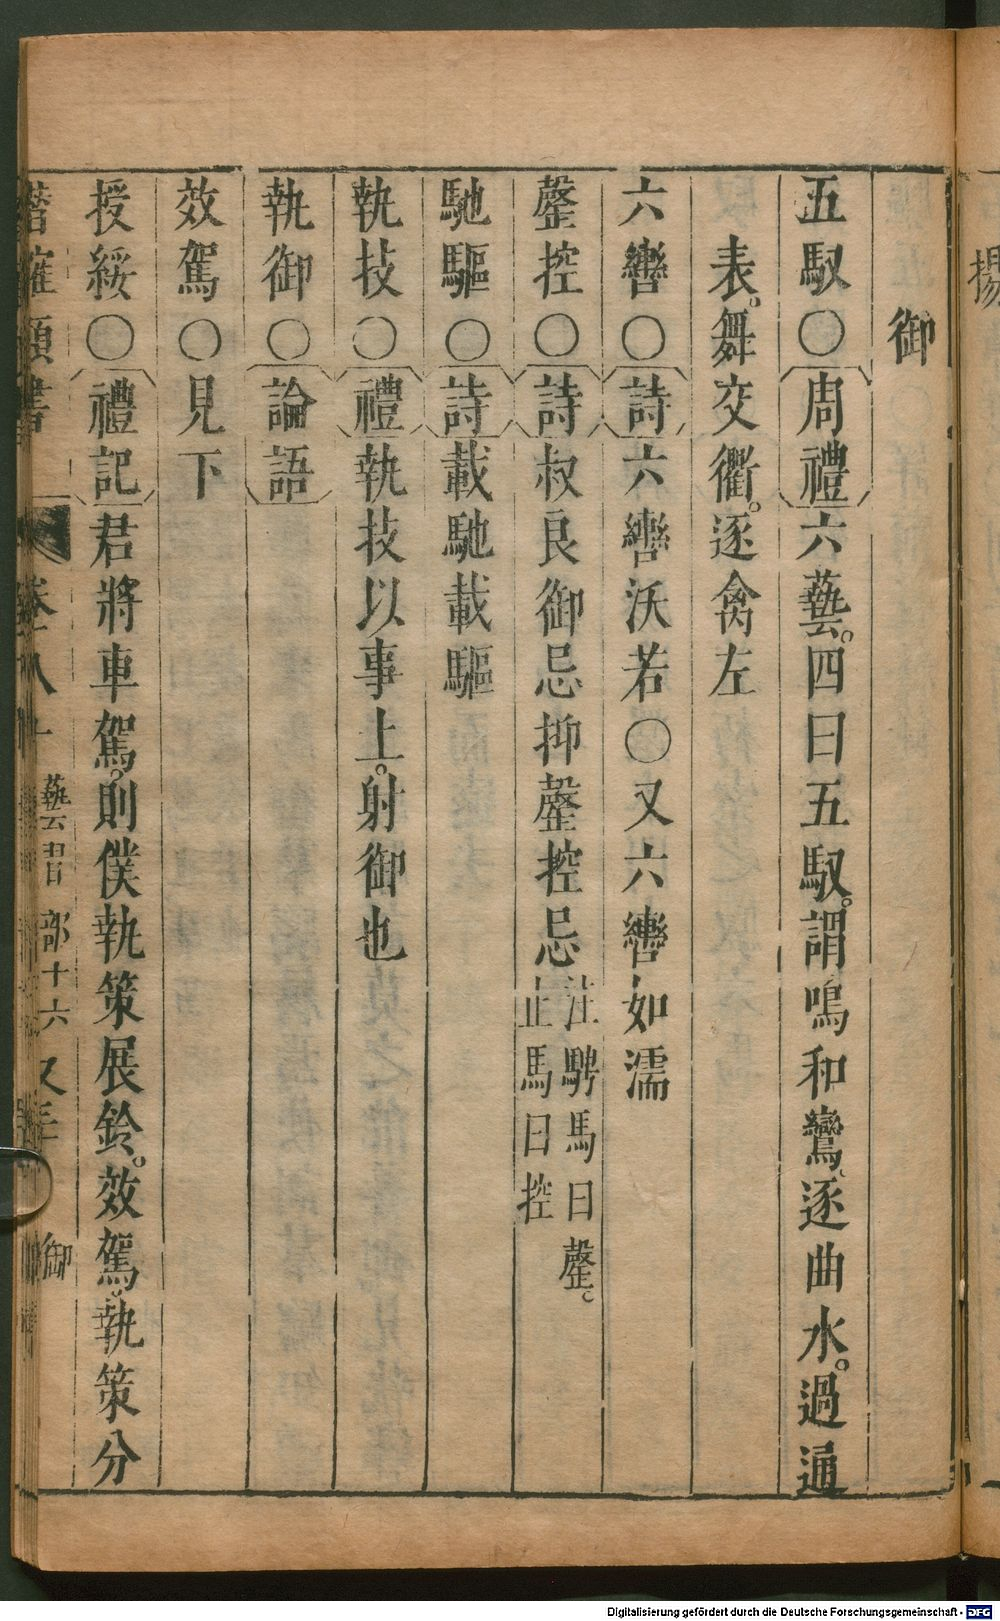 揚
御
五馭〇周禮六藝。四曰五馭。謂鳴和鸞。逐曲水。過通
表。舞交衢。逐禽左
六轡〇詩六轡沃若〇又六轡如濡
罄控〇詩叔良御忌抑罄控忌注騁馬曰罄。止馬曰控
馳驅〇詩載馳載驅
執技〇禮執技以事上。射御也
執御〇論語
效駕〇見下
授綏〇禮記君將車駕。則僕執策展鈴。效駕。執策分
潛確類書 卷八十 藝習部十六 又三 御
Digitalisierung gefördert durch die Deutsche Forschungsgemeinschaft - DFG